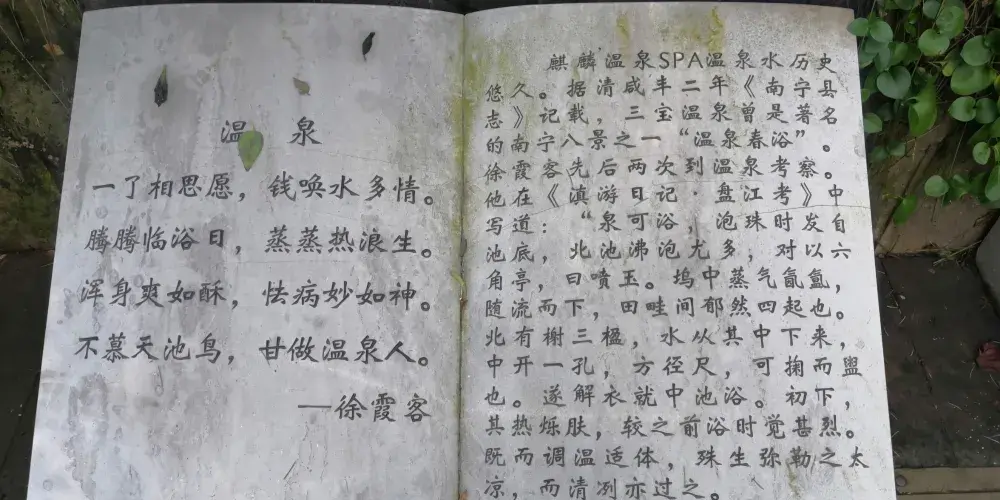 温泉
一了相思愿，钱唤水多情。
腾腾临浴日，蒸蒸热浪生。
浑身爽如酥，怯病妙如神。
不慕天池鸟，甘做温泉人。
—徐霞客
麒麟温泉SPA温泉水历史
悠久。据清咸丰二年《南宁县
志》记载，三宝温泉曾是著名
的南宁八景之一“温泉春浴”。
徐霞客先后两次到温泉考察。
他在《滇游日记·盘江考》中
写道：“泉可浴，泡珠时发自
池底，北池沸泡尤多，对以六
角亭，曰喷玉。坞中蒸气氤氲，
随流而下，田畦间郁然四起也。
北有榭三楹，水从其中下来，
中开一孔，方径尺，可掬而盥
也。遂解衣就中池浴。初下，
其热烁肤，较之前浴时觉甚烈。
既而调温适体，殊生弥勒之太
凉，而清冽亦过之。